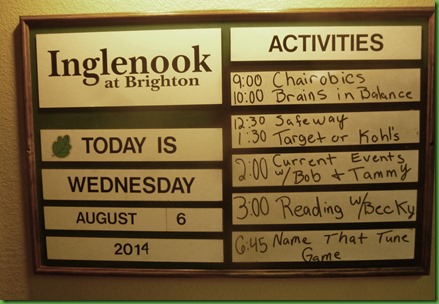 Inglenook
at Brighton
TODAY IS
WEDNESDAY
AUGUST 6
2014
ACTIVITIES
9:00 Chairobics
10:00 Brains in Balance
12:30 Safeway
1:30 Target or Kohl's
2:00 Current Events
w/Bob & Tammy
3:00 Reading w/Becky
6:45 Name That Tune
Game